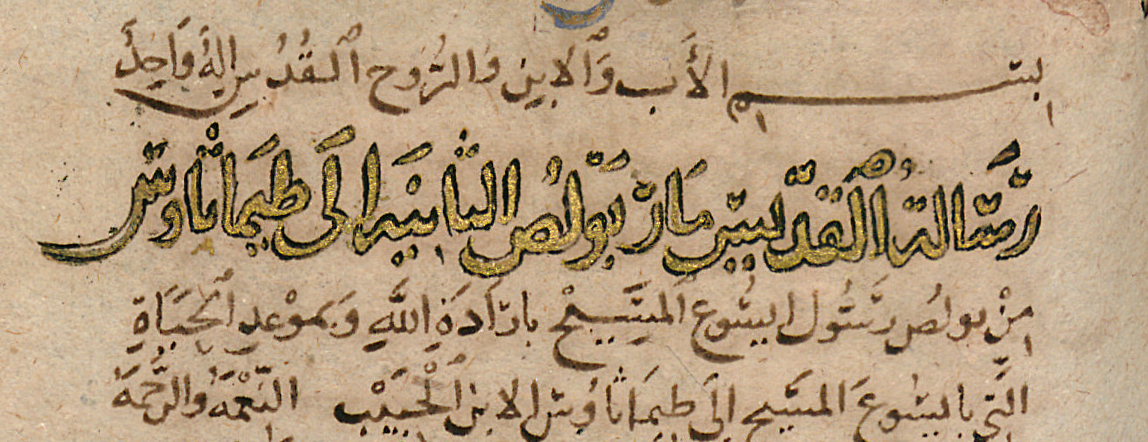 ابســـــم الأَب وَٱلابن وَالرُّوح ٱلقُدُس إِلَهٌ وَاحِدٌ
رسَالة ٱلقدّيس مَار بَوْلُص الثانيَه اِلَى طيمَاثاوس
مِنْ بولص رَسُول ايسُوع المَسِيْح بارَادَةِ اللَّهِ وَبمَوْعدِ الحَيَاةِ
الَّتي باليسُوعَ المَسيَح اِلَى طيمَاثاوُس الابن الْحَبَيْب النِّعْمَةُ والرَّحْمَة